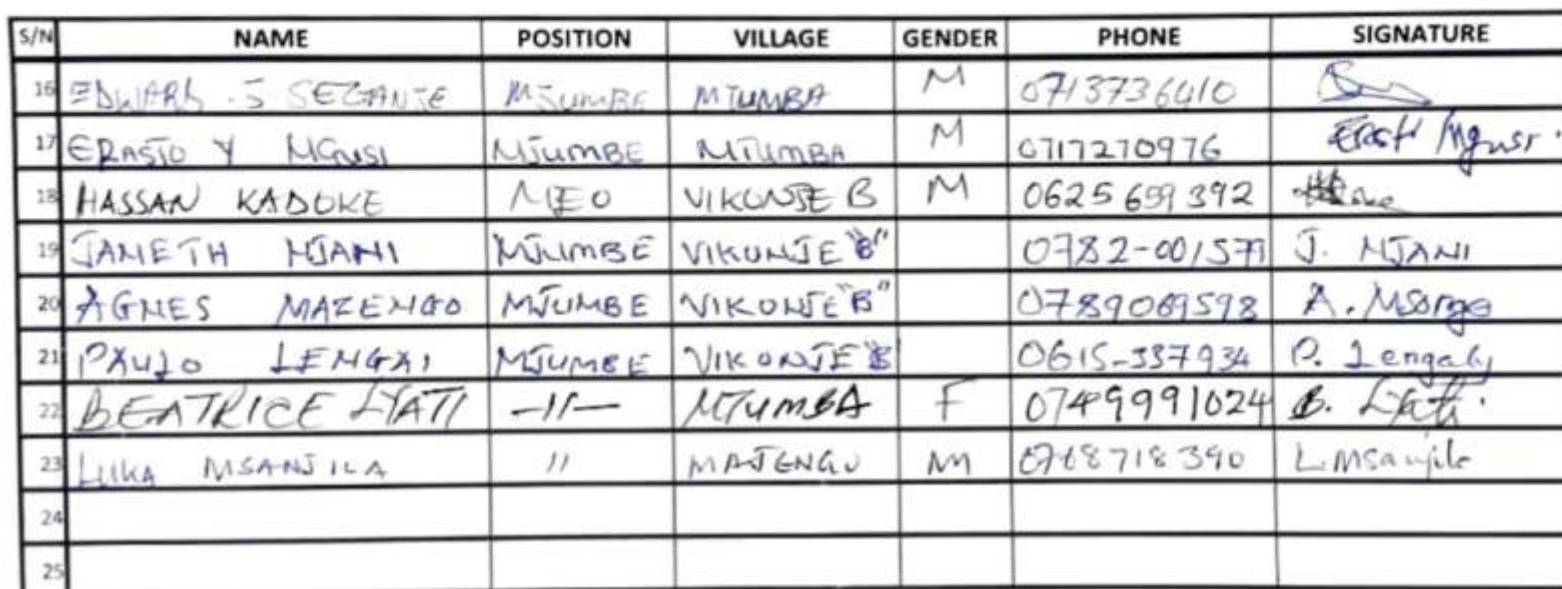 S/N NAME POSITION VILLAGE GENDER PHONE SIGNATURE
16 EDWARD .S SEGANJE MJUMBE MTUMBA M 0713736410
17 ERASTO Y MGUSI MJUMBE MTUMBA M 0717270976 Erasto Mgusi
18 HASSAN KADOKE MEO VIKONJE B M 0625 659 392
19 JANETH MJANI MJUMBE VIKONJE "B" 0782-001577 J. MJANI
20 AGNES MAZENGO MJUMBE VIKONJE "B" 0789069598 A. Msonge
21 PAULO LENGAI MJUMBE VIKONJE "B" 0615-337934 P. Lengai
22 BEATRICE LYATI -11- MTUMBA F 0749991024 B. Lyati
23 LUKA MSANJILA 11 MAJENGO M 0768718390 L.Msanjila
24
25